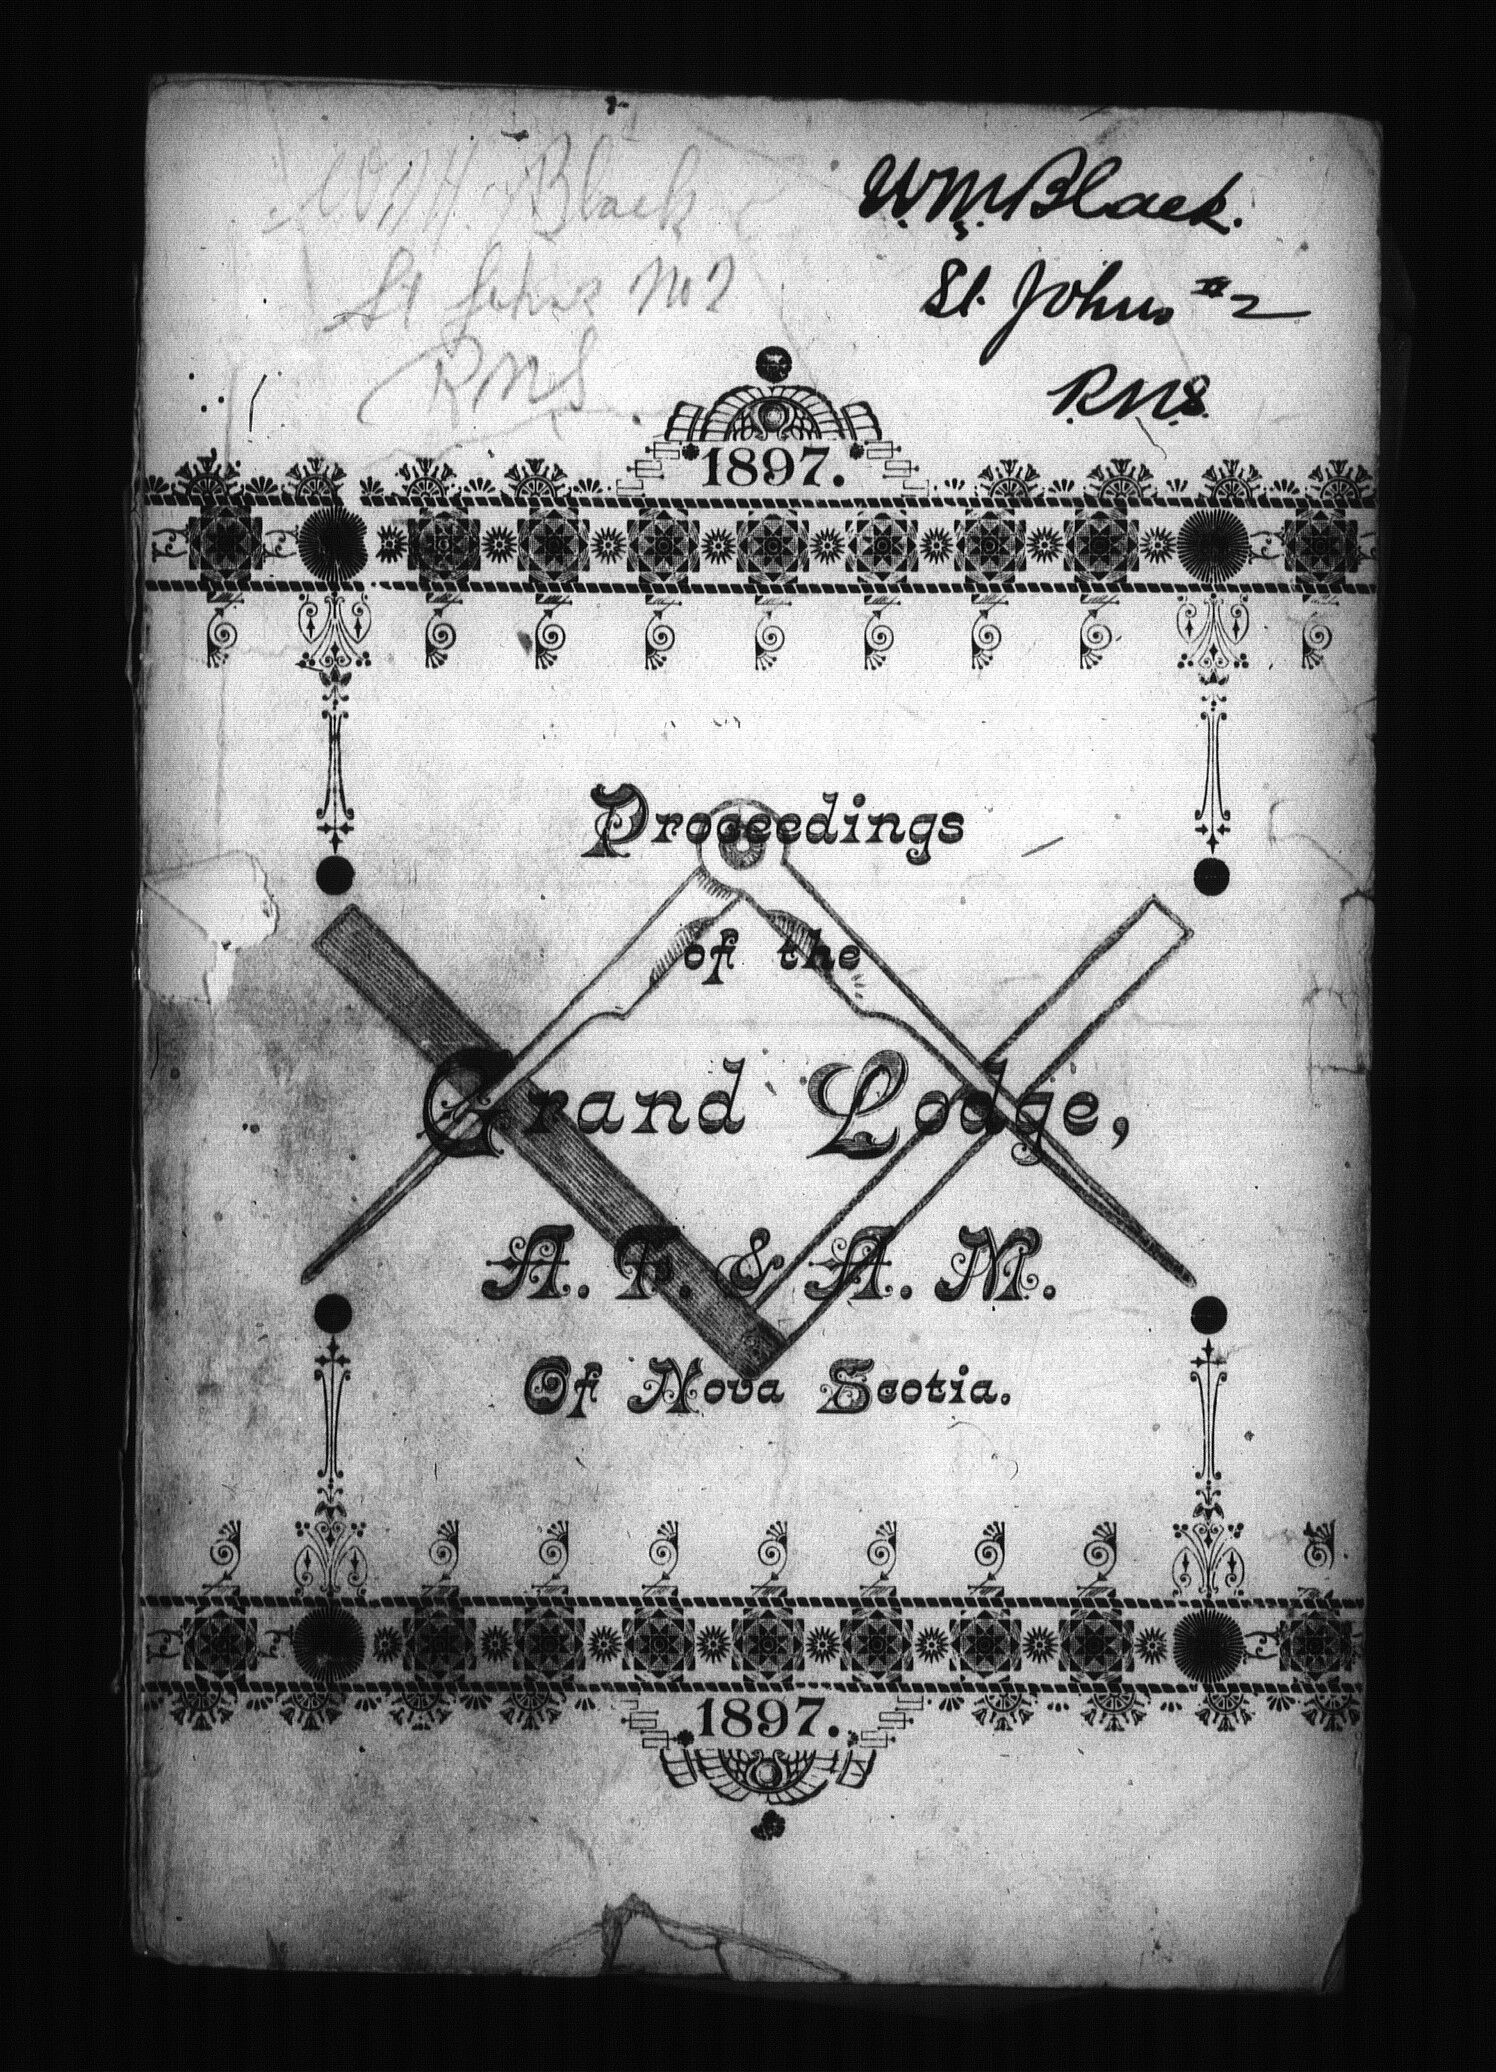 Black
St Johns No 2
RNS
Wm Black.
St. Johns #2
R.N.S.
1897.
Proceedings
of the
Grand Lodge,
A. F. & A. M.
Of Nova Scotia.
1897.